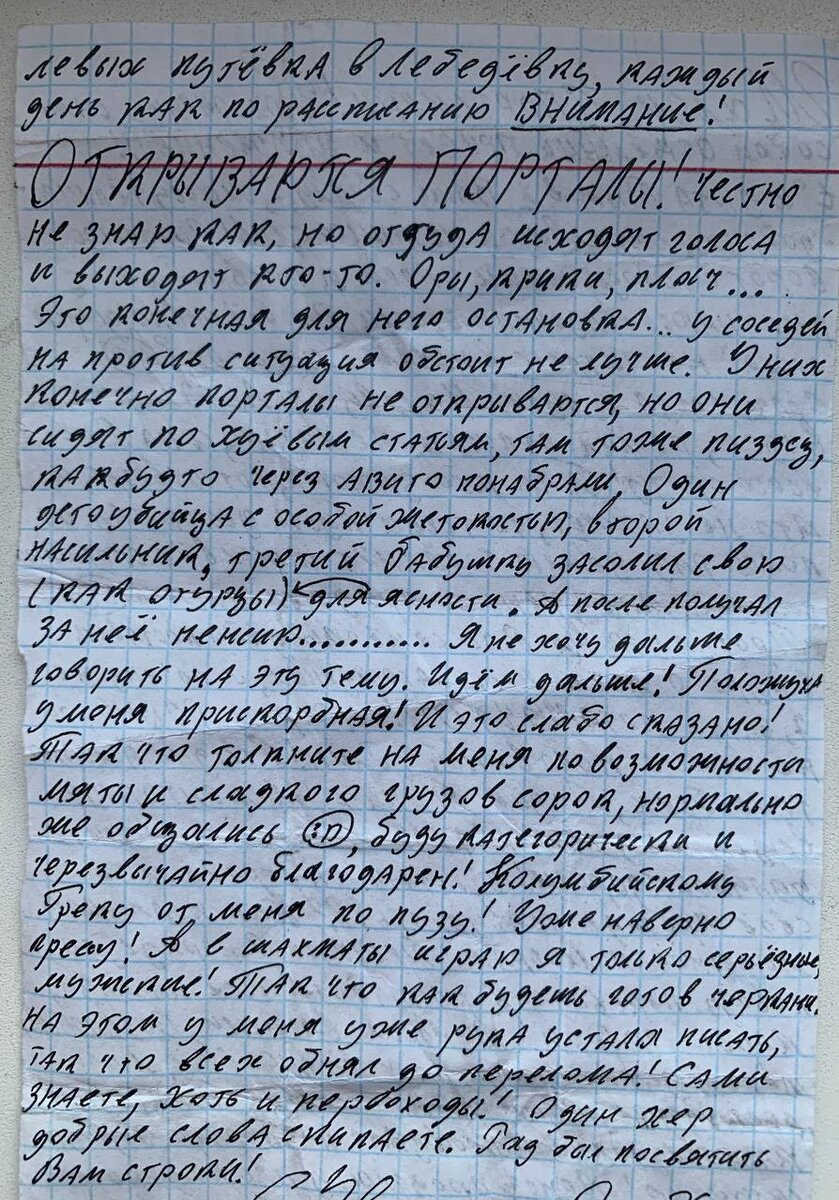 левых путёвка в Лебедёвку, каждый
день как по расписанию ВНИМАНИЕ!
ОТКРЫВАЮТСЯ ПОРТАЛЫ! Честно
не знаю как, но оттуда исходят голоса
и выходят кто-то. Оры, крики, плач...
Это конечная для него остановка... у соседей
на против ситуация обстоит не лучше. У них
конечно порталы не открываются, но они
сидят по хуёвым статьям, там тоже пиздец,
как будто через Авито понабрали, Один
детоубийца с особой жетокостью, второй
насильник, третий бабушку засолил свою
(как огурцы) для ясности. А после получал
за неё пенсию........... Я не хочу дальше
говорить на эту тему. Идём дальше! Положуха
у меня прискорбная! И это слабо сказано!
Так что толкните на меня по возможности
мяты и сладкого грузов сорок, нормально
же общались :п, буду категорически и
черезвычайно благодарен! Колумбийскому
Греку от меня по пузу! Уже наверно
прессу! А в шахматы играю я только серьёзные,
мужские! Так что как будешь готов черкани.
На этом у меня уже рука устала писать,
так что всех обнял до перелома! Сами
знаете, хоть и первоходы! Один хер
добрые слова скипаете. Рад был посвятить
Вам строки!